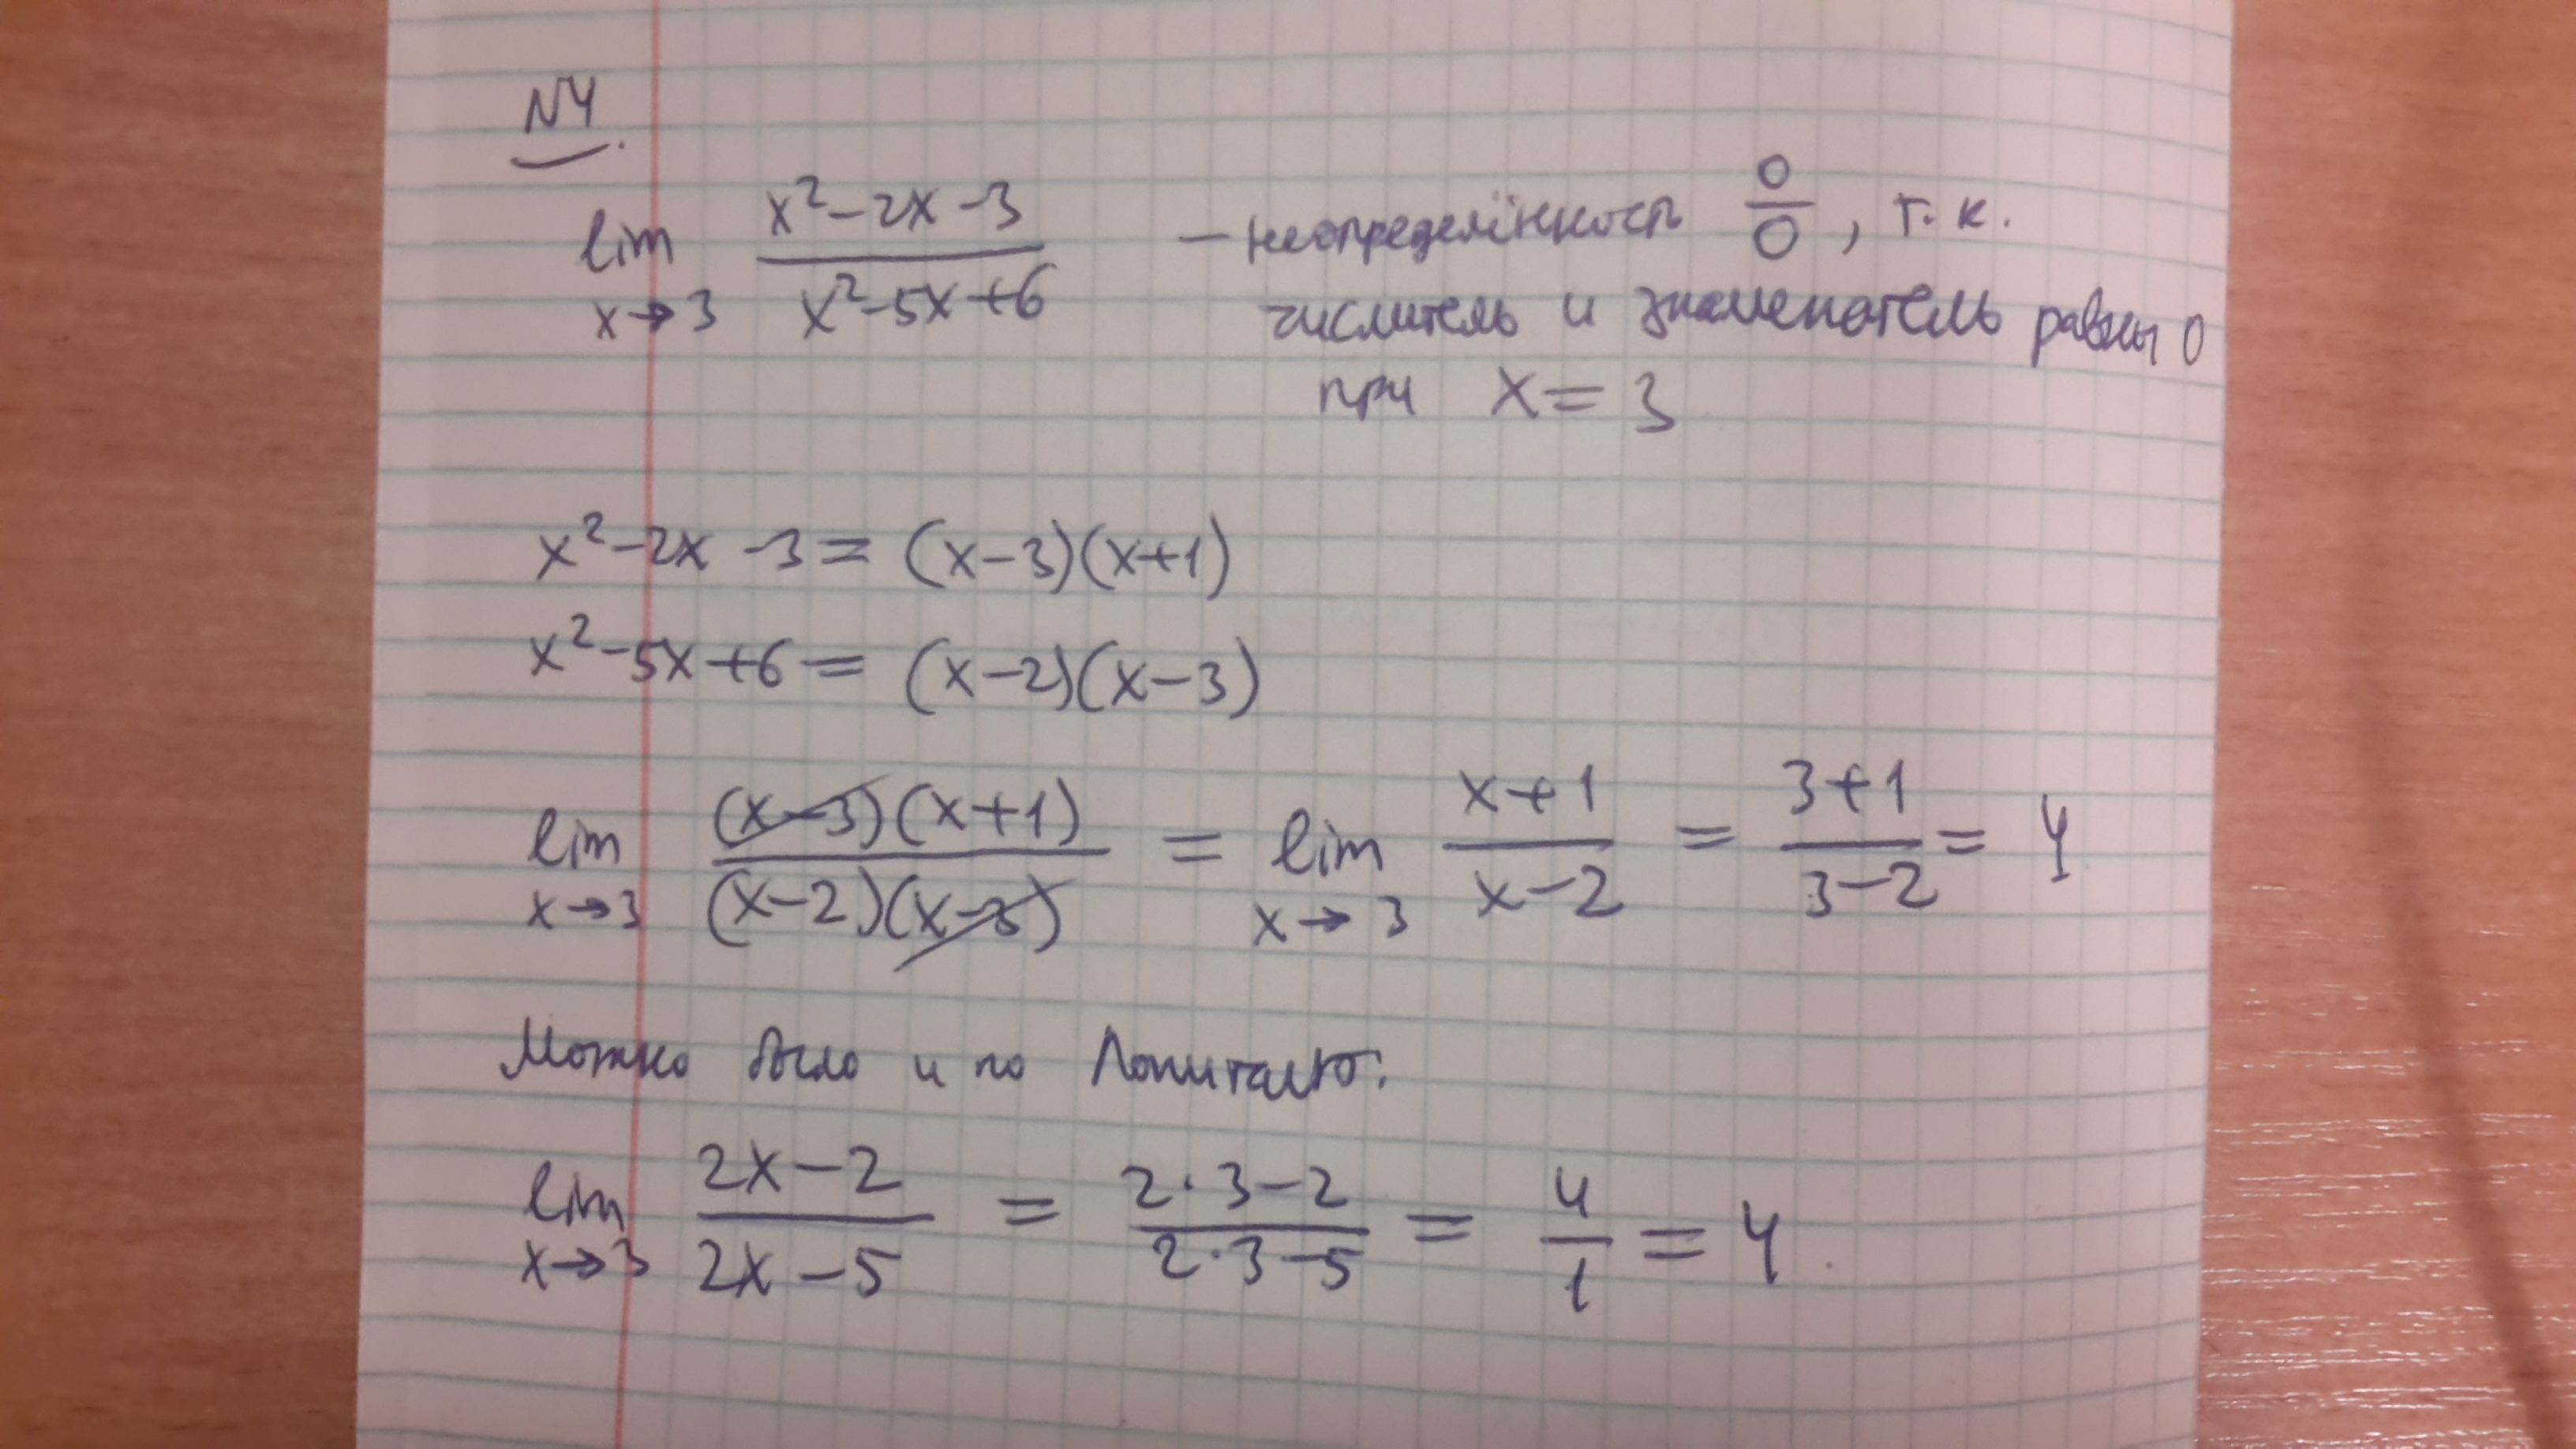 N4.
lim x→3 (x²-2x-3)/(x²-5x+6) — неопределённость 0/0, т.к.
числитель и знаменатель равны 0
при x=3
x²-2x-3=(x-3)(x+1)
x²-5x+6=(x-2)(x-3)
lim x→3 (x-3)(x+1)/(x-2)(x-3) = lim x→3 (x+1)/(x-2) = (3+1)/(3-2) = 4
Можно было и по Лопиталю:
lim x→3 (2x-2)/(2x-5) = (2·3-2)/(2·3-5) = 4/1 = 4.